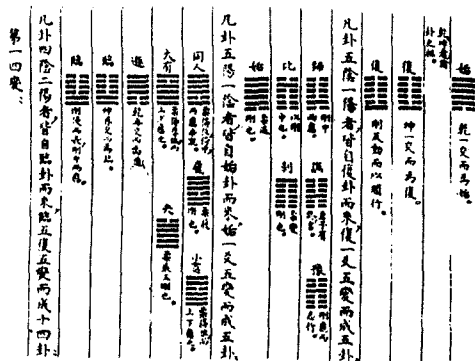 姤 乾一交而為姤。
乾坤者諸
卦之祖。
復 坤一交而為復。
復 剛反動而以順行。
凡卦五陰一陽者皆自復卦而來復一爻五變而成五卦。
師 剛中而應。 謙 豫 剛應而志行。
比 以剛中也。 剝 柔變剛也。
姤 柔遇剛也。
凡卦五陽一陰者皆自姤卦而來姤一爻五變而成五卦。
同人 履 小畜
大有 夬
遯 乾再交而為遯
臨 坤再交而為臨。
臨 剛浸而長剛中而應。
凡卦四陰二陽者皆自臨卦而來臨五復五變而成十四卦。
第一四變：